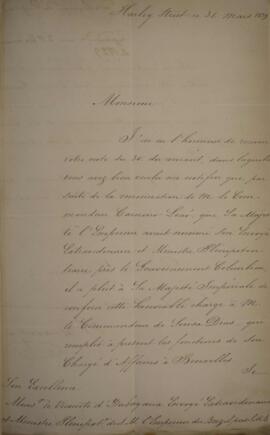 Harley Street ce 31 Mars 1829
Monsieur
J'ai eu l'honneur de recevoir
votre note du 30 du courant, dans laquelle
vous avez bien voulu me notifier que, par
suite de la renonciation de M. le Com-
mandeur Carneiro Leão, que Sa Majes-
té l'Empereur avait nommé Son Envoyé
Extraordinaire et Ministre Plénipoten-
tiaire, près le Gouvernement Colombien
il a plût à Sa Majesté Impériale de
conférer cette honorable charge à M.
le Commandeur de Souza Dias, qui
remplit à présent les fonctions de Son
Chargé d'Affaires à Bruxelles
Je
Son Excellence
Mons. le Vicomte d'Itabayana Envoyé Extraordinaire
et Ministre Plénipot. de S. M. l'Empereur du Brézil